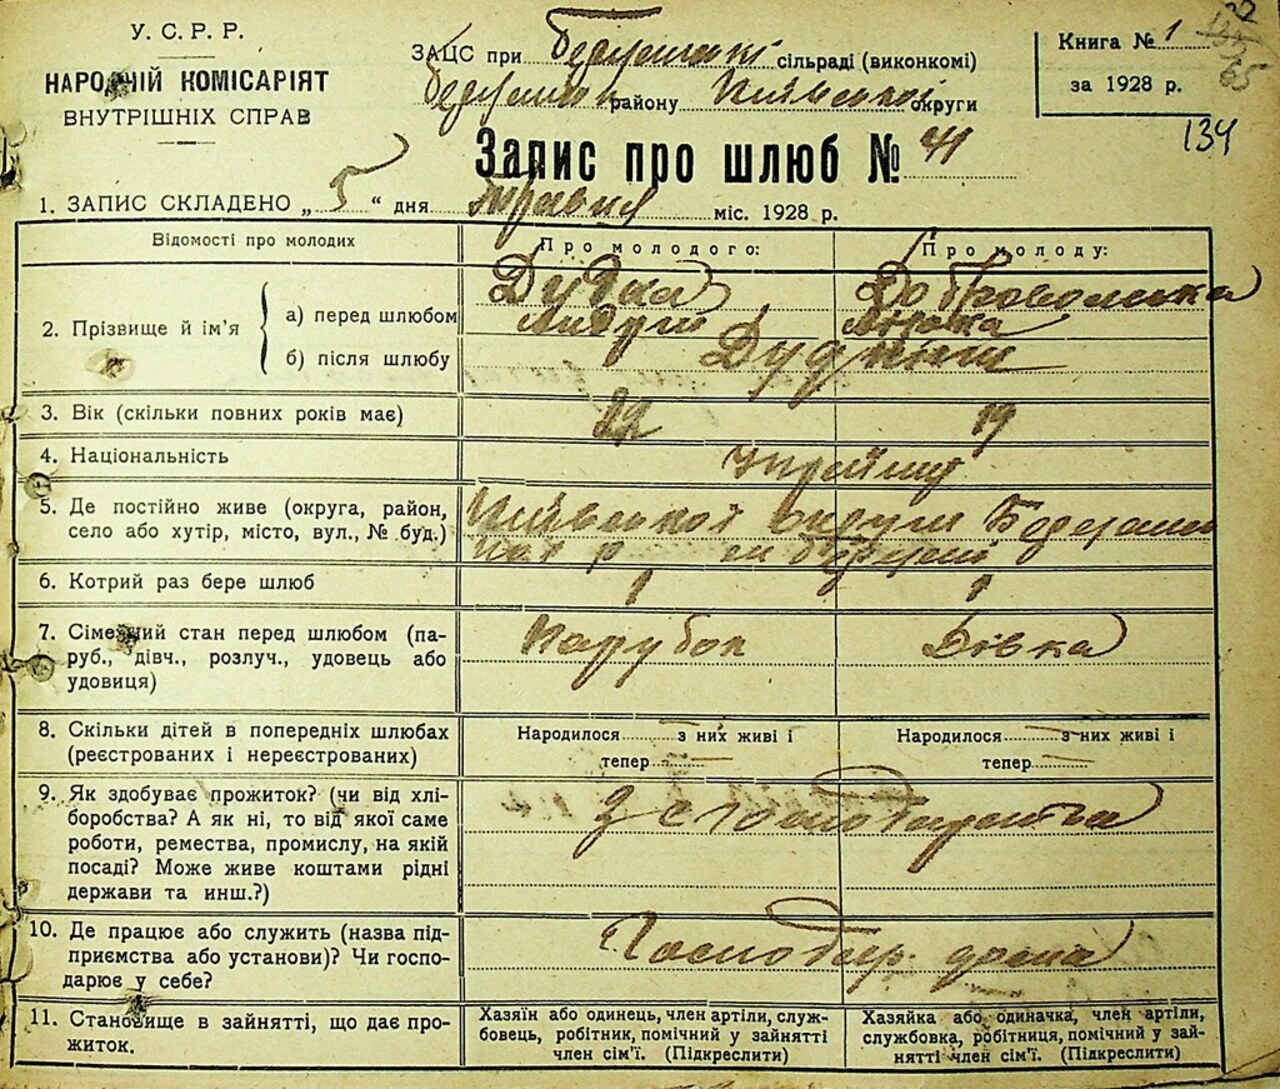 У. С. Р. Р.
НАРОДНІЙ КОМІСАРІЯТ
ВНУТРІШНІХ СПРАВ
ЗАЦС при сільраді (виконкомі)
району Київської округи
Книга № 1
за 1928 р.
134
Запис про шлюб № 41
1. ЗАПИС СКЛАДЕНО „ 5 “ дня Травня міс. 1928 р.
Відомості про молодих
Про молодого:
Про молоду:
2. Прізвище й ім'я
а) перед шлюбом
б) після шлюбу
Дудка
Добровольська
3. Вік (скільки повних років має)
22
19
4. Національність
5. Де постійно живе (округа, район,
село або хутір, місто, вул., № буд.)
Київської округи
6. Котрий раз бере шлюб
1
1
7. Сімейний стан перед шлюбом (па-
руб., дівч., розлуч., удовець або
удовиця)
Парубок
Дівка
8. Скільки дітей в попередніх шлюбах
(реєстрованих і нереєстрованих)
Народилося — з них живі і
тепер —
Народилося — з них живі і
тепер —
9. Як здобуває прожиток? (чи від хлі-
боробства? А як ні, то від якої саме
роботи, ремества, промислу, на якій
посаді? Може живе коштами рідні
держави та инш.?)
10. Де працює або служить (назва під-
приємства або установи)? Чи госпо-
дарює у себе?
Господар. дома
11. Становище в зайнятті, що дає про-
житок.
Хазяїн або одинець, член артіли, служ-
бовець, робітник, помічний у зайнятті
член сім'ї. (Підкреслити)
Хазяйка або одиначка, член артіли,
службовка, робітниця, помічний у зай-
нятті член сім'ї. (Підкреслити)